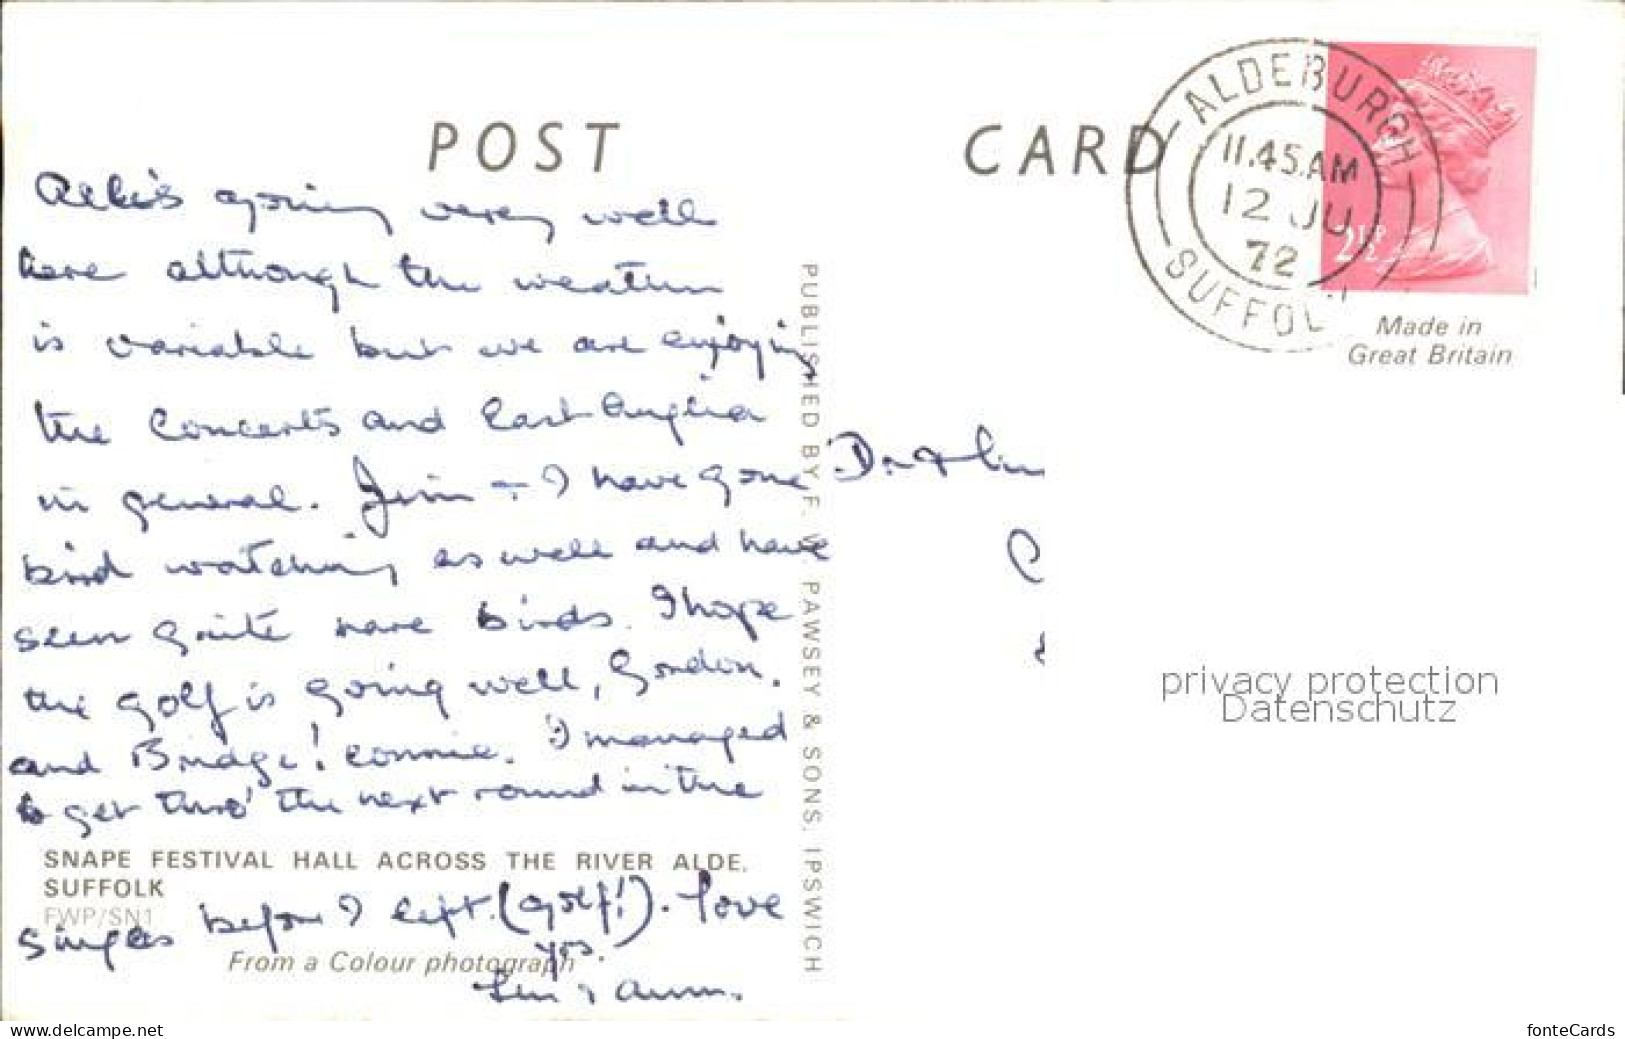 POST CARD
ALDEBURGH
11.45 AM
12 JU
72
SUFFOL
2½P
Made in
Great Britain
All is going very well
here although the weather
is variable but we are enjoying
the Concerts and East Anglia
in general. Jim + I have gone
bird watching as well and have
seen quite rare birds. I hope
the golf is going well, Gordon.
and Bridge! Connie. I managed
to get thro' the next round in the
SNAPE FESTIVAL HALL ACROSS THE RIVER ALDE,
SUFFOLK
FWP/SN1
singles before I left (golf!). Love
From a Colour photograph
yrs.
& Ann.
PUBLISHED BY F. W. PAWSEY & SONS, IPSWICH
Dr. +
privacy protection
Datenschutz
www.delcampe.net
fonteCards